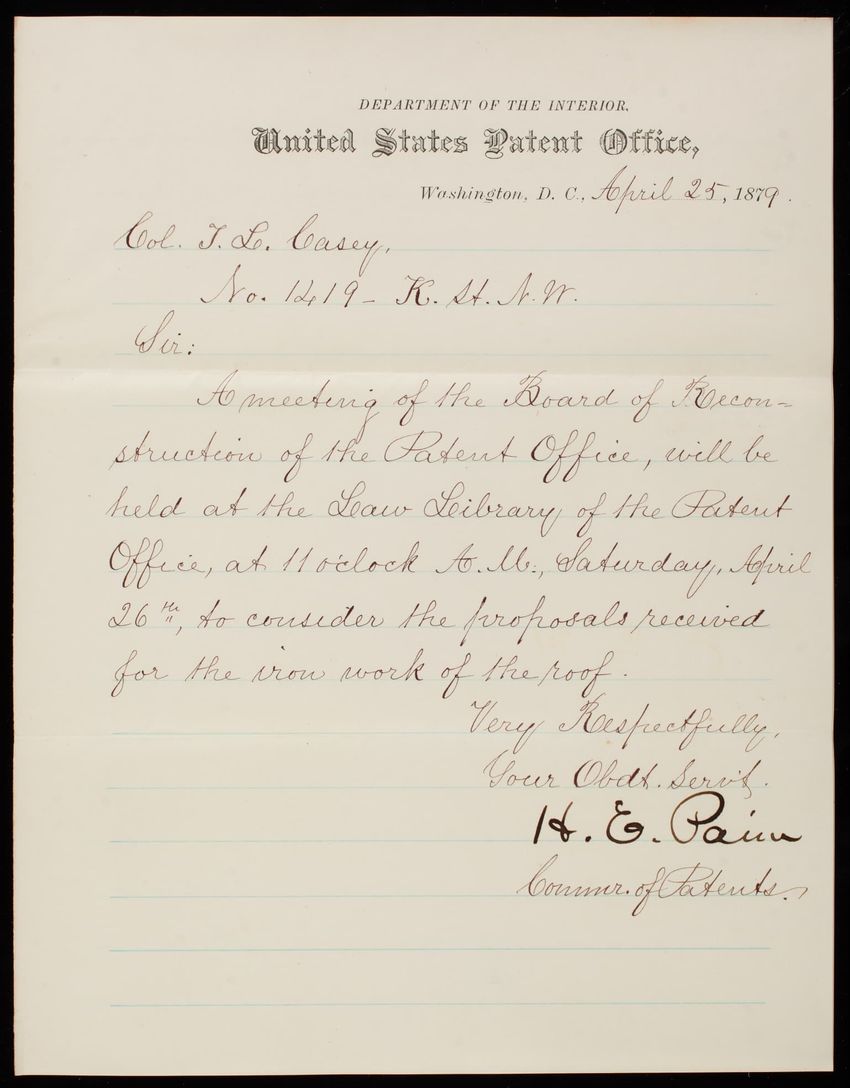 DEPARTMENT OF THE INTERIOR,
United States Patent Office,
Washington, D. C., April 25, 1879.
Col. T. L. Casey,
No. 1419 - K. St. N. W.
Sir:
A meeting of the Board of Recon=
struction of the Patent Office, will be
held at the Law Library of the Patent
Office, at 11 o'clock A. M., Saturday, April
26th, to consider the proposals received
for the iron work of the roof.
Very Respectfully,
Your Obdt. Servt.
H. E. Paine
Commr. of Patents.